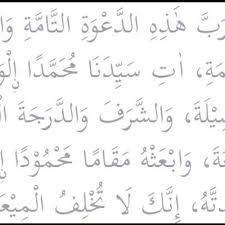 رَبَّ هَٰذِهِ الدَّعْوَةِ التَّامَّةِ وَا
مَةِ، اٰتِ سَيِّدَنَا مُحَمَّدًا اِلْوَ
سِيْلَةَ، وَالشَّرَفَ وَالدَّرَجَةَ ا
عَةَ، وَابْعَثْهُ مَقَامًا مَحْمُوْدًا اِ
دتَّهُ، اِنَّكَ لَا تُخْلِفُ الْمِيْعَ